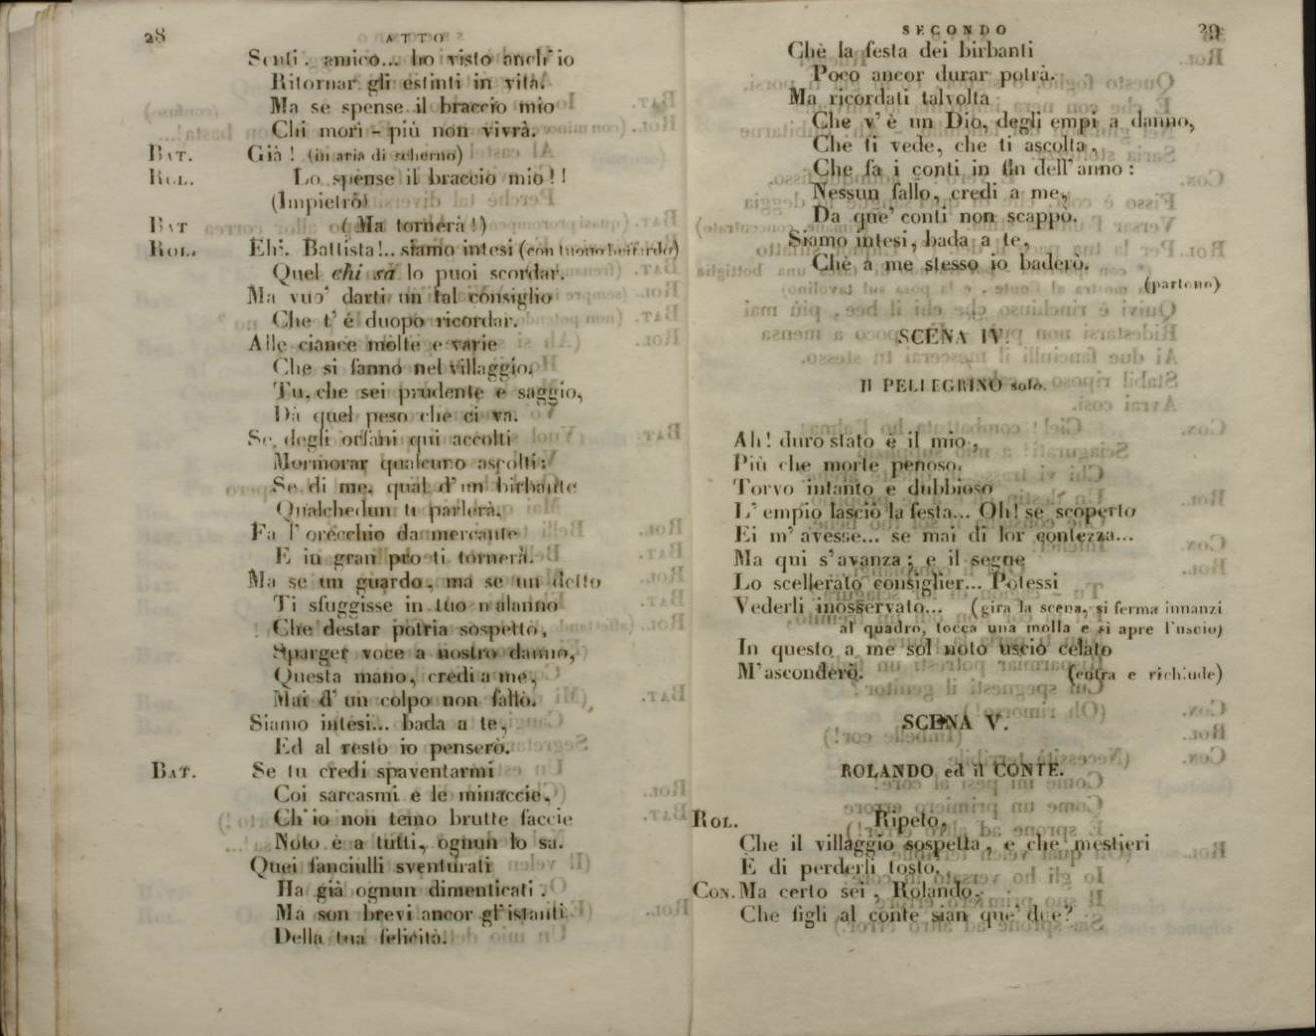 28
ATTO
Senti, amico... ho visto anch'io
Ritornar gli estinti in vita.
Ma se spense il braccio mio
Chi morì - più non vivrà.
BAT. Già! (in aria di scherno)
ROL. Lo spense il braccio mio!!
(Impietrò)
BAT (Ma tornerà!)
ROL. Eh!. Battista!.. siamo intesi (con tuono beffardo)
Quel chi sa lo puoi scordar.
Ma vuo' darti un tal consiglio
Che t'è duopo ricordar.
Alle ciance molte e varie
Che si fanno nel villaggio,
Tu, che sei prudente e saggio,
Dà quel peso che ci va.
Se degli orfani qui accolti
Mormorar qualcuno ascolti;
Se di me, qual d'un birbante
Qualchedun ti parlerà,
Fa l'orecchio da mercante
E in gran pro ti tornerà.
Ma se un guardo, ma se un detto
Ti sfuggisse in tuo malanno
Che destar potria sospetto,
Sparger voce a nostro danno,
Questa mano, credi a me,
Mai d'un colpo non fallò.
Siamo intesi... bada a te,
Ed al resto io penserò.
BAT. Se tu credi spaventarmi
Coi sarcasmi e le minaccie,
Ch'io non temo brutte faccie
Noto è a tutti, ognun lo sa.
Quei fanciulli sventurati
Ha già ognun dimenticati.
Ma son brevi ancor gl'istanti
Della tua felicità.
SECONDO
29
Chè la festa dei birbanti
Poco ancor durar potrà.
Ma ricordati talvolta
Che v'è un Dio, degli empi a danno,
Che ti vede, che ti ascolta,
Che fa i conti in fin dell'anno:
Nessun fallo, credi a me,
Da que' conti non scappò.
Siamo intesi, bada a te,
Chè a me stesso io baderò.
(partono)
SCENA IV.
Il PELLEGRINO solo.
Ah! duro stato è il mio,
Più che morte penoso.
Torvo intanto e dubbioso
L'empio lasciò la festa... Oh! se scoperto
Ei m'avesse... se mai di lor contezza...
Ma qui s'avanza; e il segue
Lo scellerato consiglier... Potessi
Vederli inosservato... (gira la scena, si ferma innanzi
al quadro, tocca una molla e si apre l'uscio)
In questo a me sol noto uscio celato
M'asconderò. (entra e richiude)
SCENA V.
ROLANDO ed il CONTE.
ROL. Ripeto,
Che il villaggio sospetta, e che mestieri
È di perderli tosto.
CON. Ma certo sei, Rolando,
Che figli al conte sian que' due?